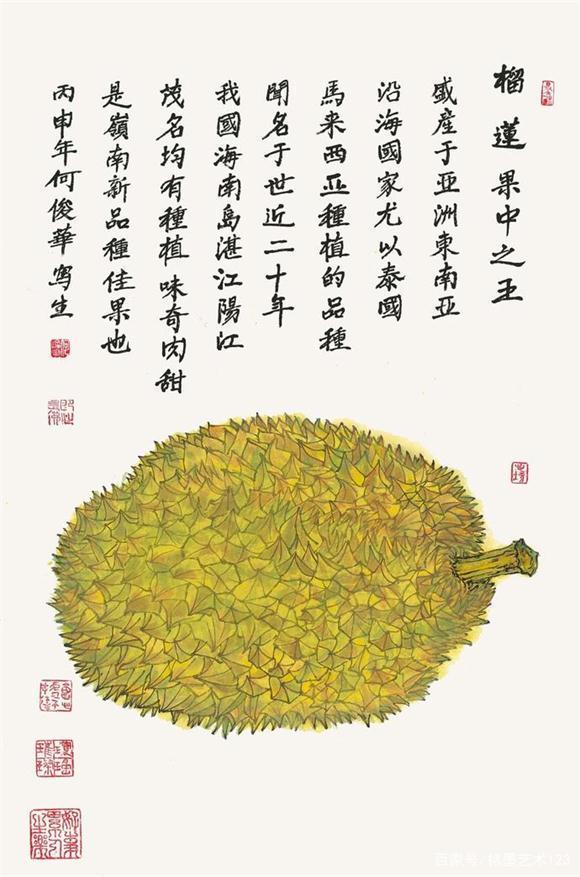 榴蓮果中之王
盛産于亚洲東南亚
沿海國家尤以泰國
馬来西亚種植的品種
聞名于世近二十年
我國海南島湛江陽江
茂名均有種植味奇肉甜
是嶺南新品種佳果也
丙申年何俊華寫生
百家号/林墨艺术123